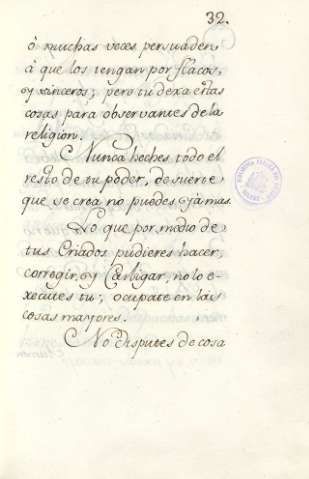 32.
ò muchas veces persuaden
à que los tengan por flacos,
y sinceros; pero tu dexa estas
cosas para observantes de la
religion.
Nunca heches todo el
resto de tu poder, de suerte
que se crea no puedes y à mas.
Lo que por medio de
tus Criados pudieres hacer,
corregir, y Castigar, no lo e-
xecutes tu; ocupate en las
cosas mayores.
No disputes de cosa